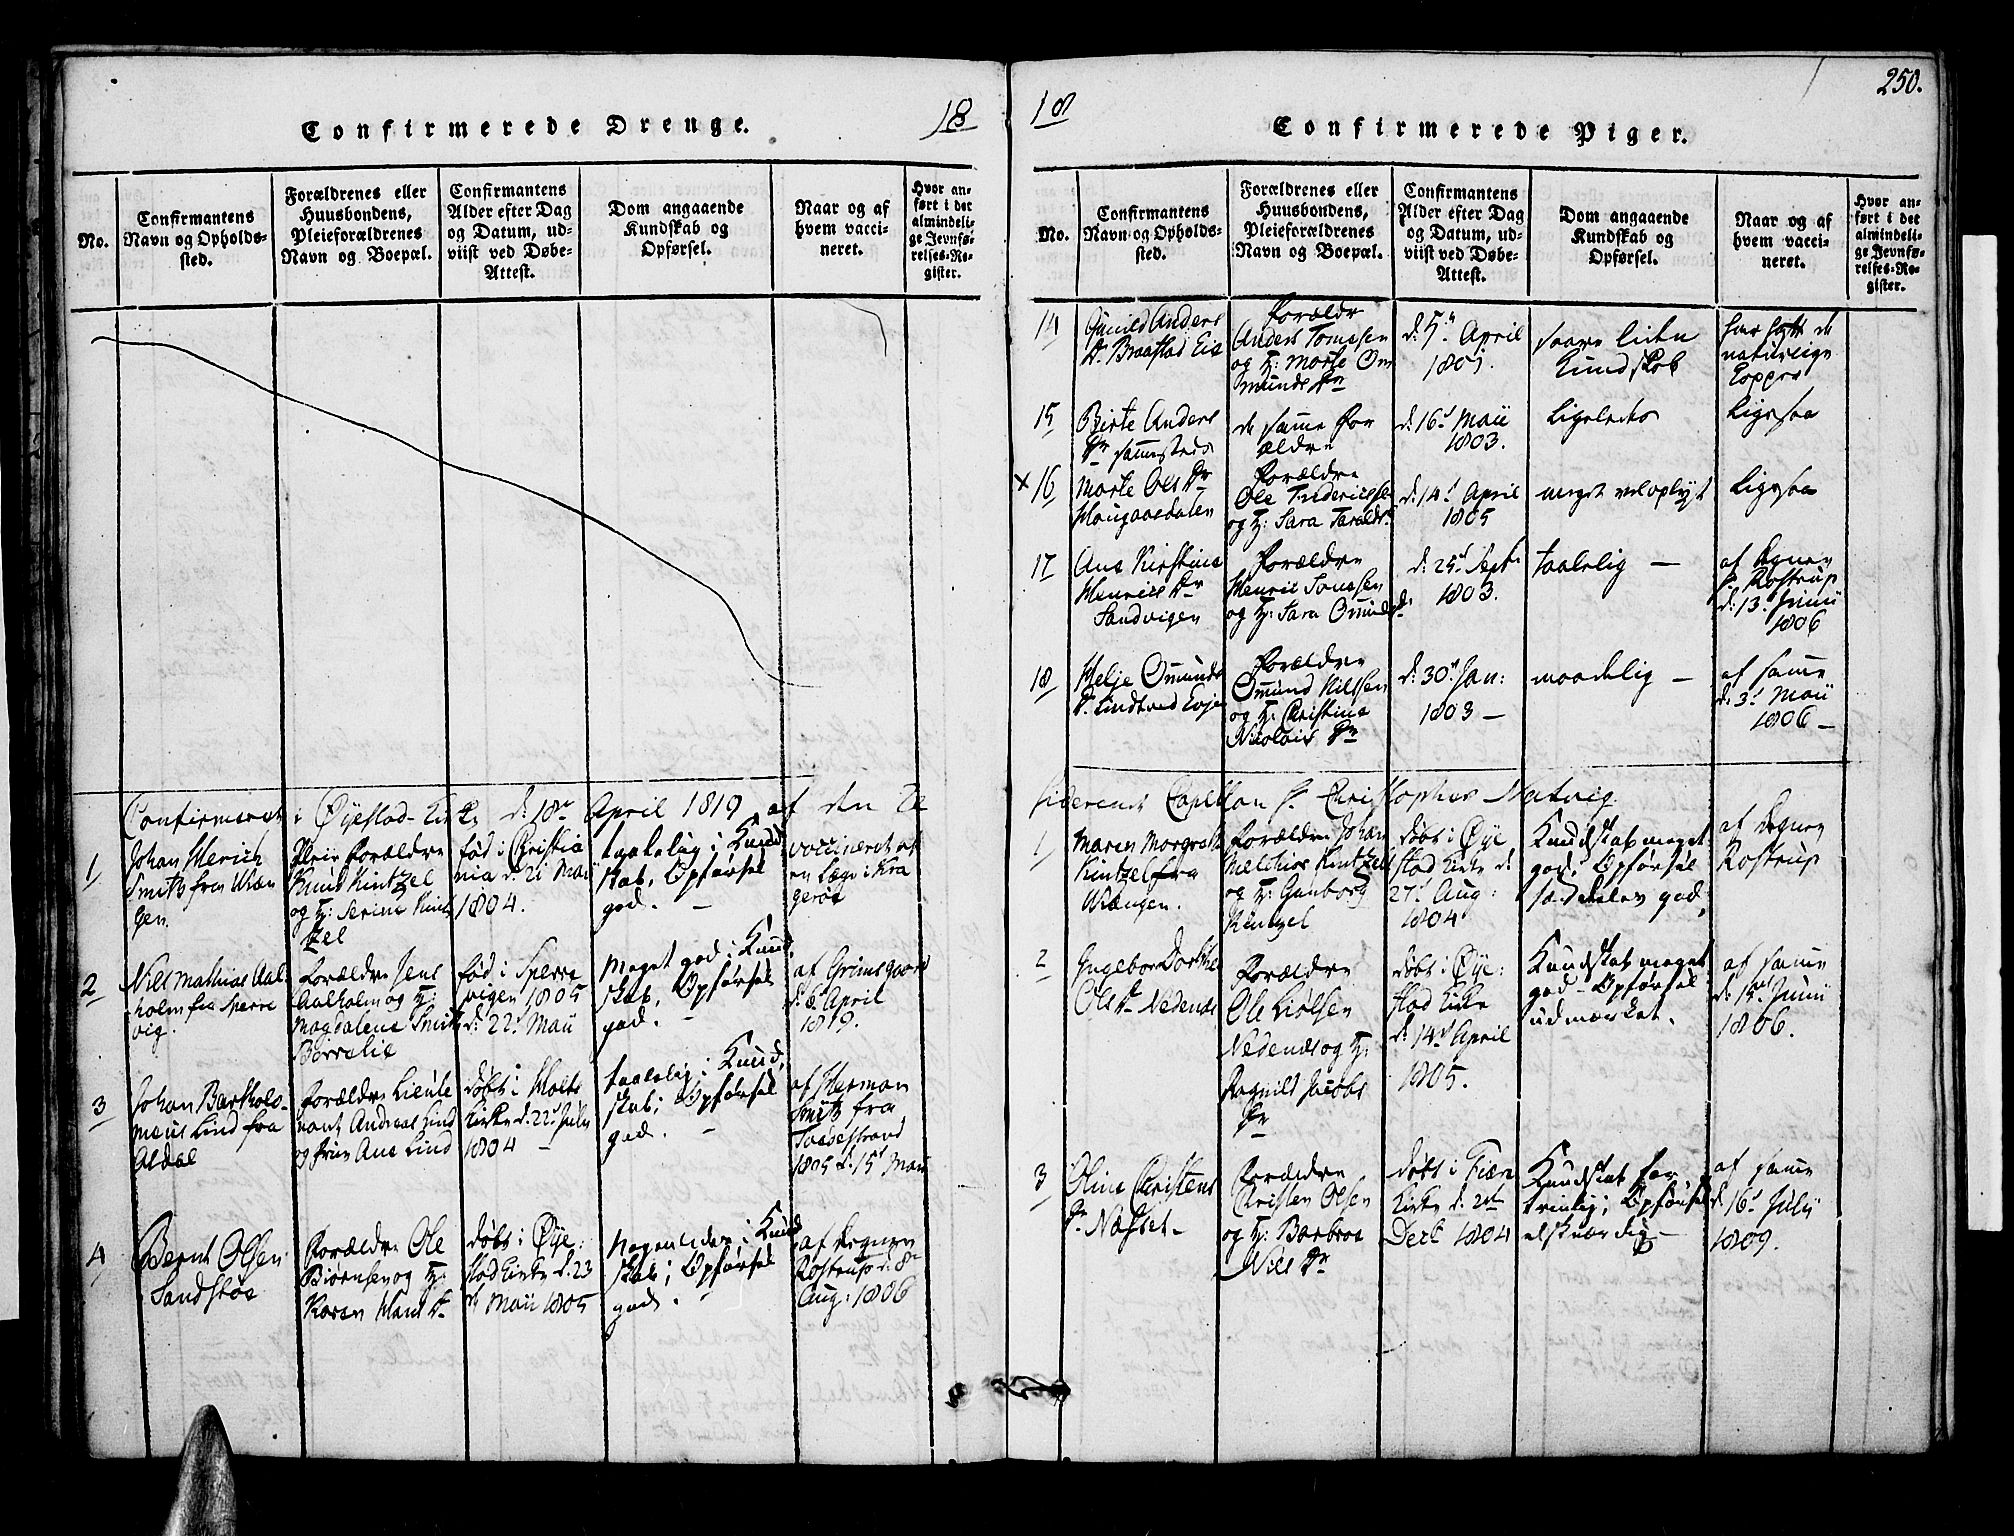 250.
Confirmerede Drenge.
18
No.
Confirmantens
Navn og Opholds-
sted.
Forældrenes eller
Huusbondens,
Pleieforældrenes
Navn og Boepæl.
Confirmantens
Alder efter Dag
og Datum, ud-
viist ved Døbe-
Attest.
Dom angaaende
Kundskab og
Opførsel.
Naar og af
hvem vacci-
neret.
Hvor an-
ført i det
almindeli-
ge Jevnfø-
relses-Re-
gister.
Confirmeret i Øyestad Kirke d: 18de April 1819 af den
1
Johan
Smith fra
gen.
Forældre
Knud Kintzel
og H: Serine Kint
zel
fød i Christia
nia d: 21 Mai
1804.
taalelig i Kund
skab, Opførsel
god. -
vaccineret af
en Læge i Kra
gerøe
2
Niels Mathias Aal-
holm fra Sperre
vig.
Forældre Jens
Aalholm og H:
Magdalena Smith
fød i Sperre
vigen 1805
d: 22d Maii
Meget god i Kund
skab, Opførsel
god. -
af Grimsgaard
d: 6d April
1819.
3
Johan Bartholo-
mæus Lind fra
Aldal
Forældre Lieute
nant Andreas Lind
og Frue Ane Lind
døbt i Holts
Kirke d: 22d July
1804 -
taalelig i Kund,
skab; Opførsel
god. -
af Herman
Smith fra
1805 d: 15d Maii
4
Bernt Olsen
Sandstøe
Forældre Ole
Biørnsen og H:
Karen Hans D.
døbt i Øye:
stad Kirke d. 23
Maii 1805
i Kund
skab; Opførsel
god. -
af Degnen
Rostrup d: 8de
Aug: 1806
18
Confirmerede Piger.
No.
Confirmantens
Navn og Opholds-
sted.
Forældrenes eller
Huusbondens,
Pleieforældrenes
Navn og Boepæl.
Confirmantens
Alder efter Dag
og Datum, ud-
viist ved Døbe-
Attest.
Dom angaaende
Kundskab og
Opførsel.
Naar og af
hvem vacci-
neret.
Hvor an-
ført i det
almindeli-
ge Jevnfø-
relses-Re-
gister.
14
Gunild Anders
D. Braastad Eie
Forældre
Anders Tomesen
og H: Marte Om
munds Dr
d: 5te April
saare liden
Kundskab
har havt de
naturlige
Kopper
15
Birte Anders
Dr sammesteds
de samme For
ældre
d: 16d Maii
1803.
Ligeledes
Ligesaa
x 16
Marte Ols Dr
Haugaasdalen
Forældre
Ole Frederichsen
og H: Sara Taralds
d: 14d April
1805
meget veloplyst
Ligesaa
17
Ane Kirstine
Henrics Dr
Sandvigen
Forældre
Henric Tomesen
og H: Sara Omunds
d: 25d Septr
1803.
taalelig -
af Degnen
Rostrup
d: 13d Junii
1806
18
Helje Omunds
D. Lindtved Evje
Forældre
Omund Nilssen
og H: Christine
Nicolais Dr
d: 30d Jan:
1803 -
maadelig -
af samme
d: 3d Maii
1806 -
siderende Capellan H. Christopher Natvig.
1
Maren Margrethe
Kintzel fra
Wrængen.
Forældre Johan
Melchior Kintzel
og H: Gunborg
Kintzel
døbt i Øye
stad Kirke d:
27d Aug:
1804
Kundskab meget
god, Opførsel
god,
af Degnen
Rostrup
2
Ingebor Dorthe
Ols Dr Nedenæs
Forældre
Ole Liølsen
Nedenæs og H:
Ragnild Jacobs
Dr
døbt i Øye:
stad Kirke
d: 14d April
1805.
Kundskab meget
god - Opførsel
udmærket.
af samme
Junii
1806.
3
Oline Christens
Dr Næsset -
Forældre
Christen Olsen
og H: Barbroe
Niels Dr
døbt i Fiære
Kirke d. 2den
Decb 1804
Kundskab for
trinlig; Opførsel
elskværdig -
af samme
d: 16d July
1809.